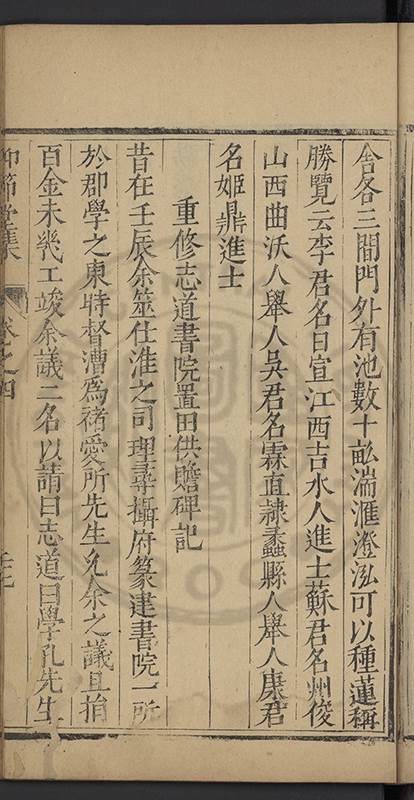 舍各三間門外有池數十畝湍滙澄泓可以種蓮稱
勝覽云李君名日宣江西吉水人進士蘇君名州俊
山西曲沃人舉人吳君名霖直隸蠡縣人舉人康君
名姬鼎進士
重修志道書院置田供贍碑記
昔在壬辰余筮仕淮之司理尋攝府篆建書院一所
於郡學之東時督漕為褚愛所先生允余之議且捐
百金未幾工竣余議二名以請曰志道曰學孔先生
仰節堂集
卷之四